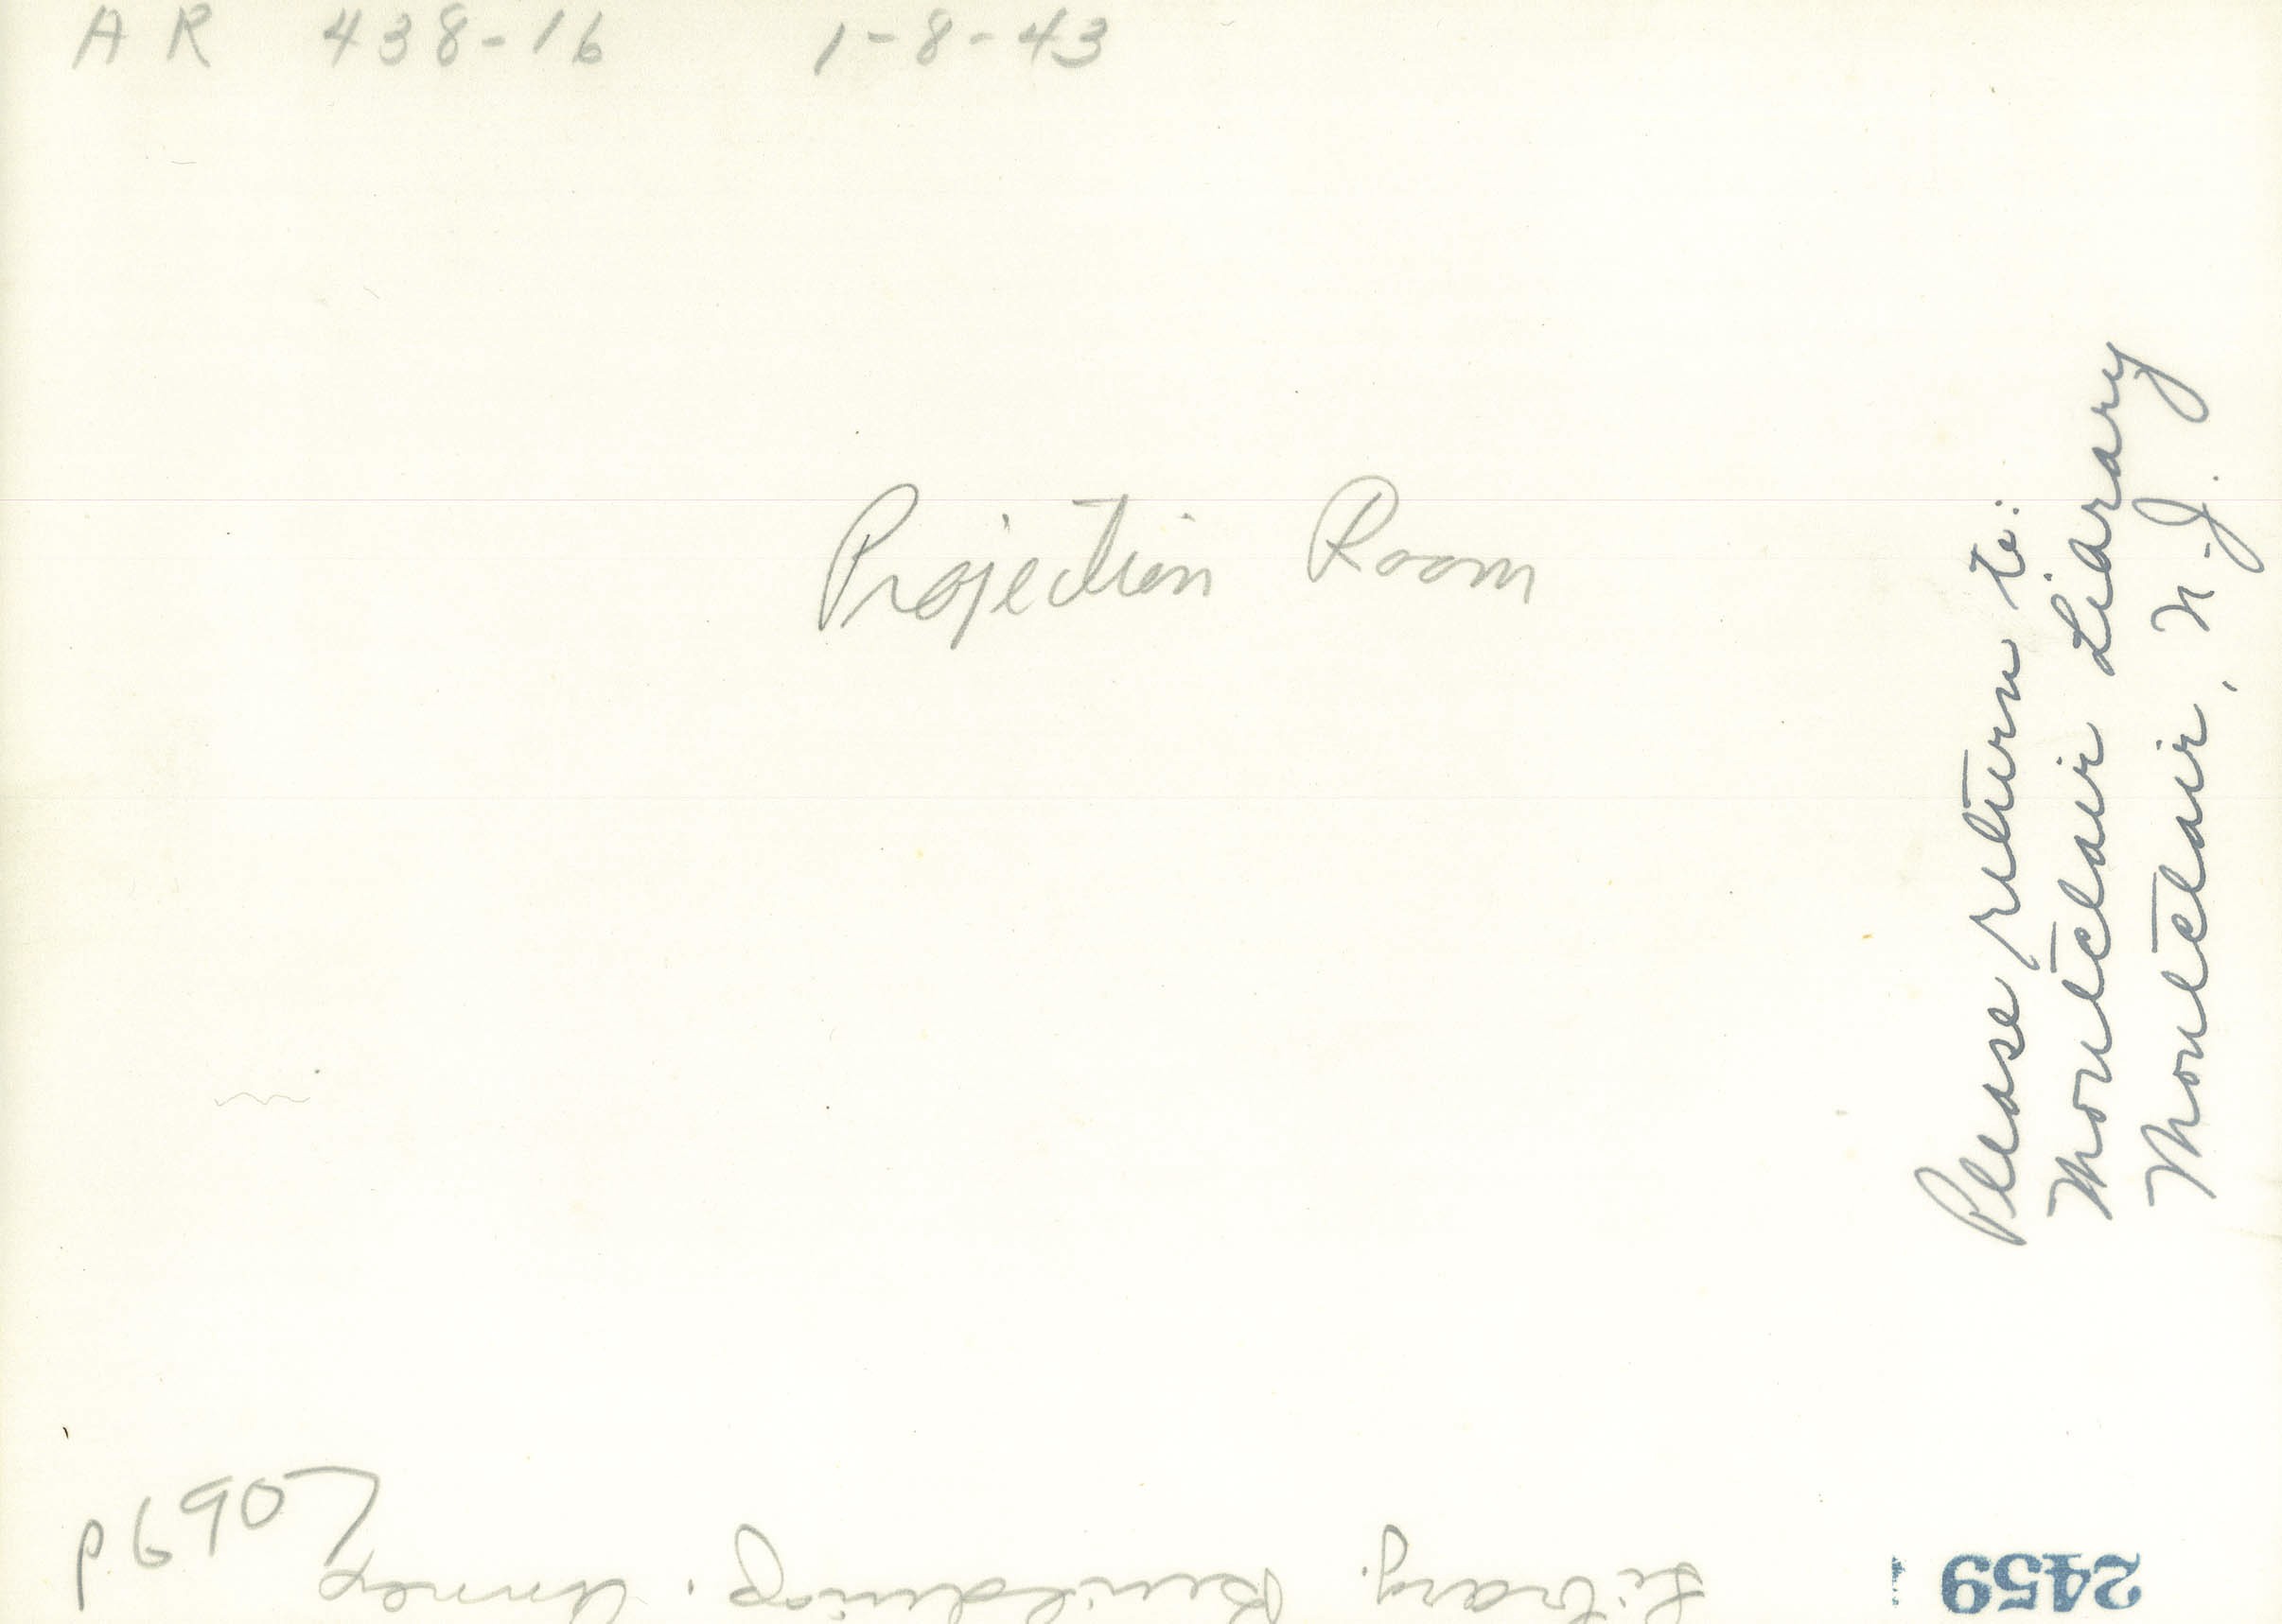 A R 438-16 1-8-43
Projection Room
Please return to:
Montclair Library
Montclair, N.J.
p.6907
2459
Library. Building. Annex